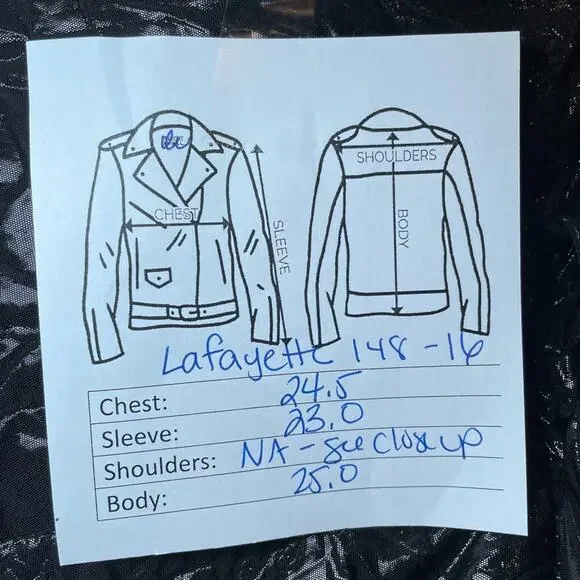 SHOULDERS
CHEST
SLEEVE
BODY
Lafayette 148 - 16
Chest: 24.5
Sleeve: 23.0
Shoulders: NA - see close up
Body: 25.0